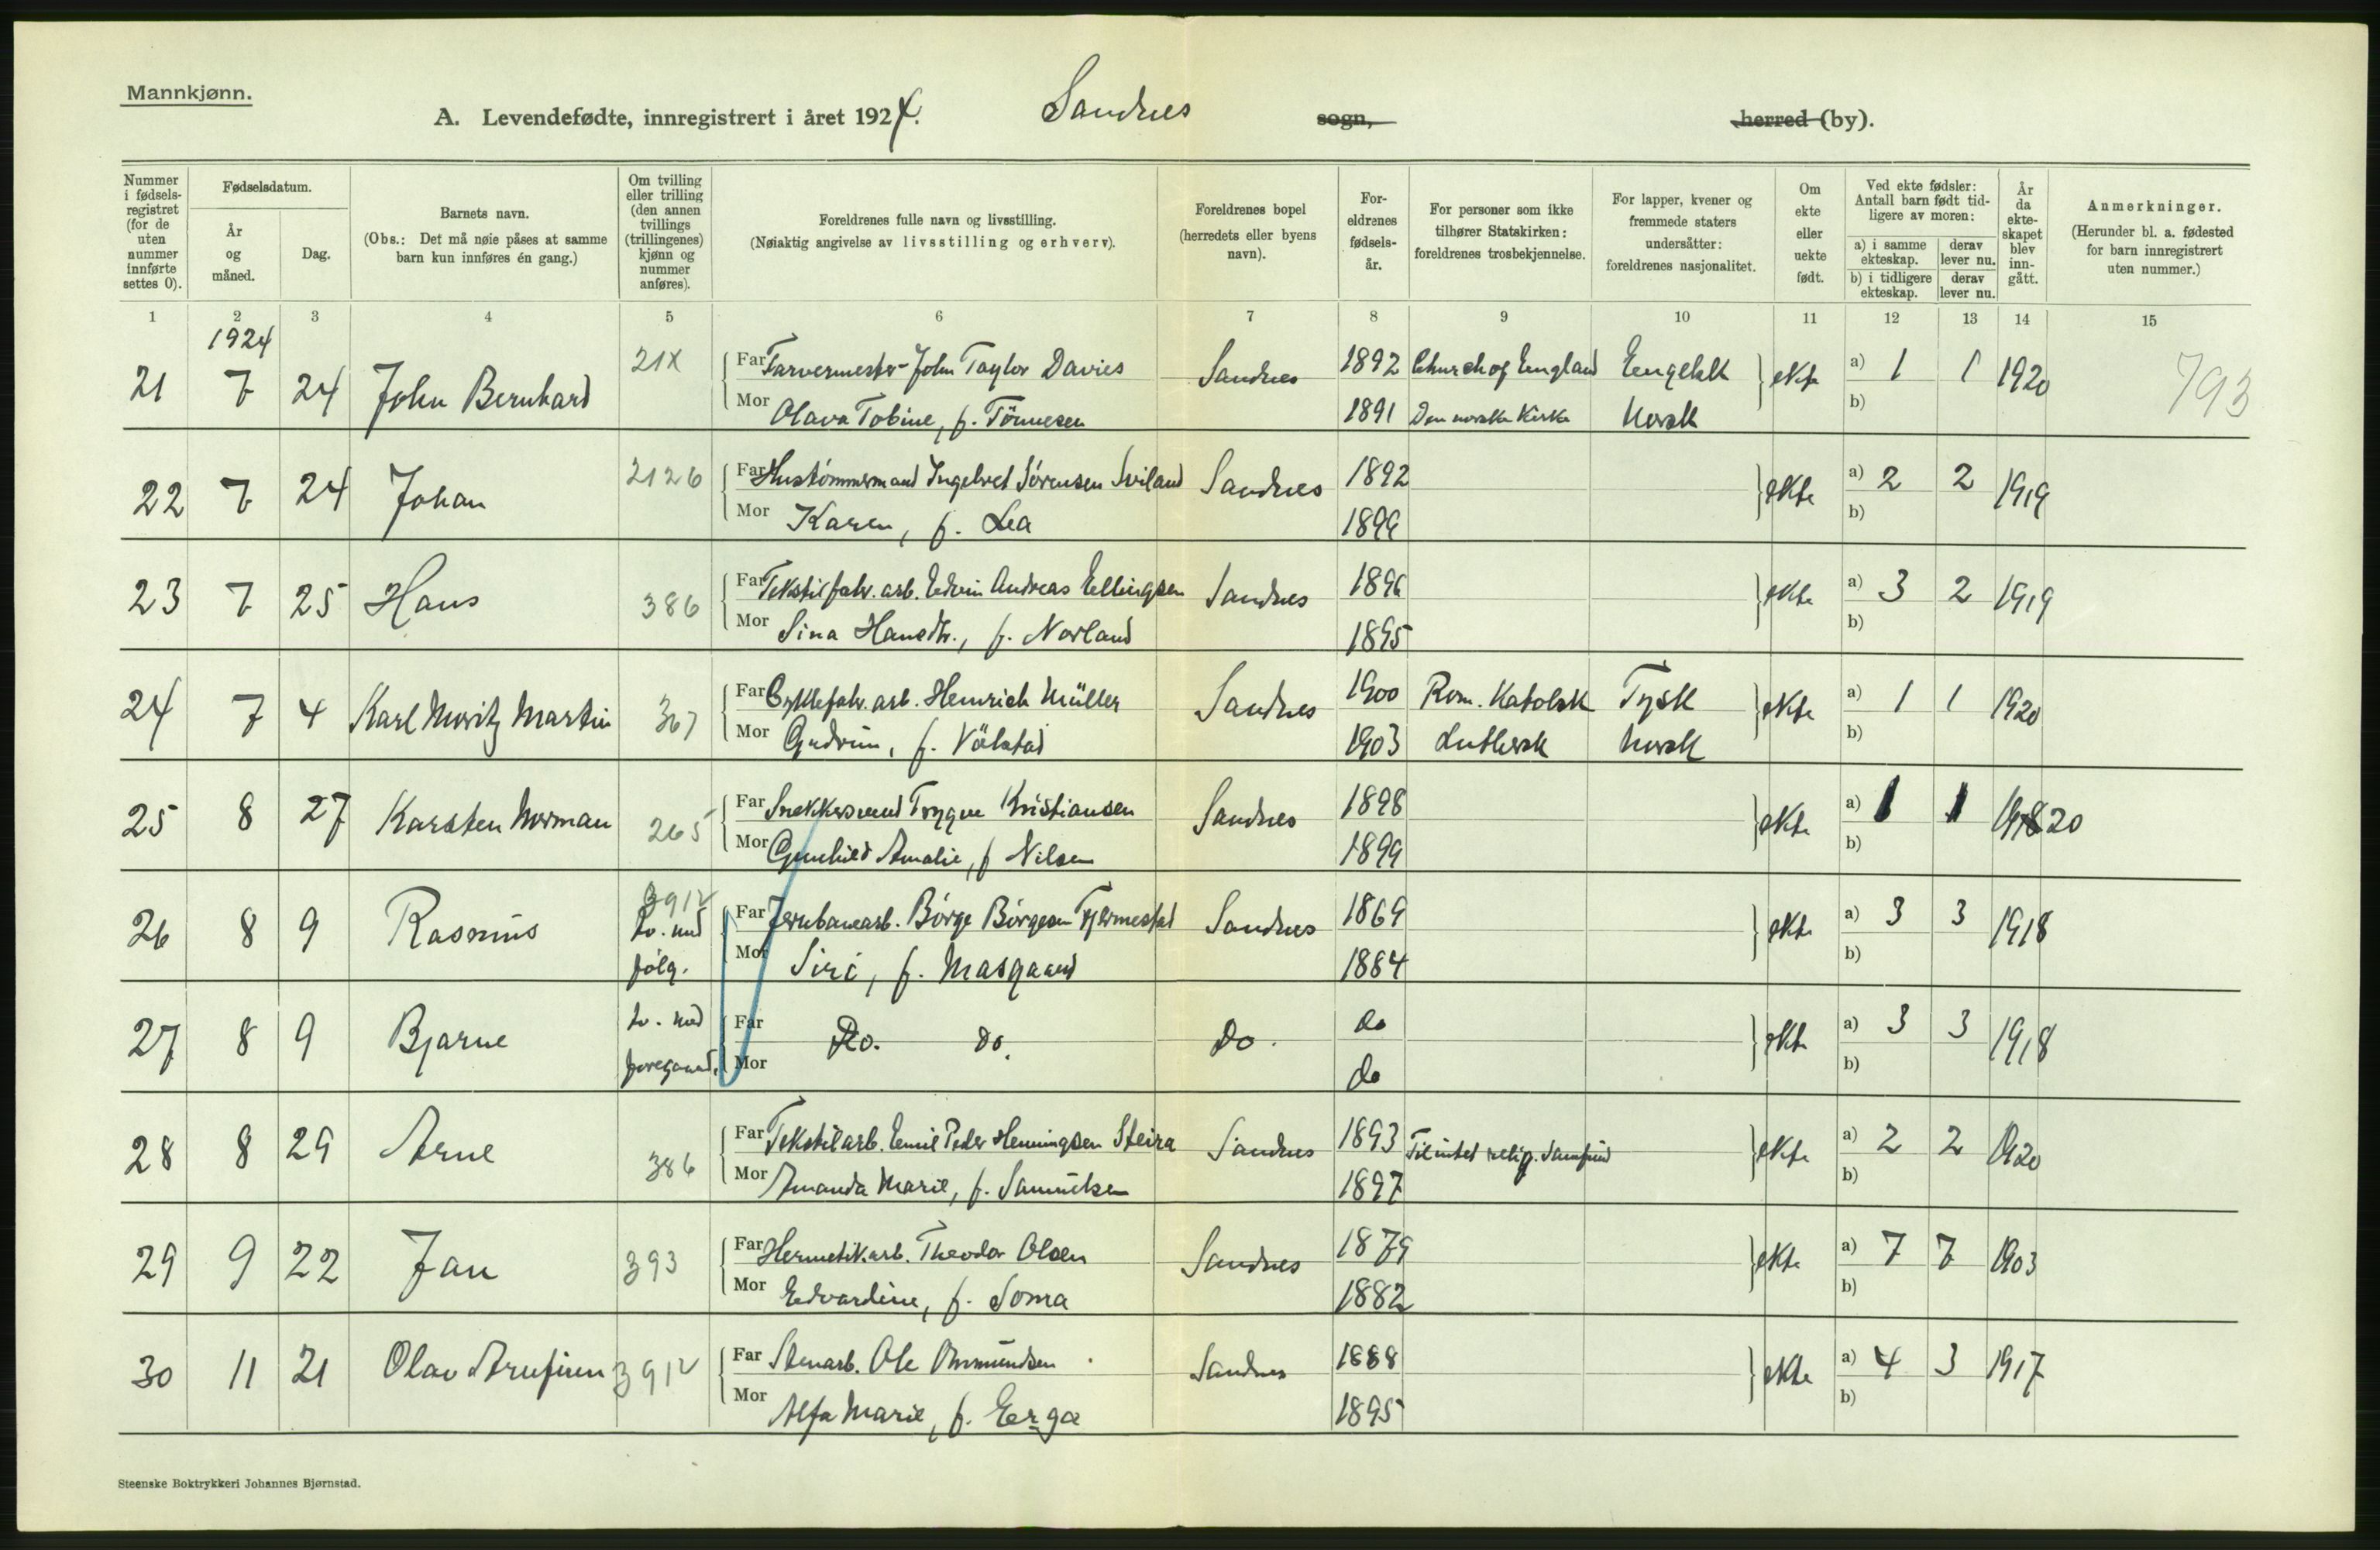 Mannkjønn.
A. Levendefødte, innregistrert i året 1924. Sandnes sogn, herred (by).
Nummer i fødselsregistret (for de uten nummer innførte settes 0).
Fødselsdatum.
År og måned.
Dag.
Barnets navn.
(Obs.: Det må nøie påses at samme barn kun innføres én gang.)
Om tvilling eller trilling (den annen tvillings (trillingenes) kjønn og nummer anføres).
Foreldrenes fulle navn og livsstilling.
(Nøiaktig angivelse av livsstilling og erhverv).
Foreldrenes bopel (herredets eller byens navn).
Foreldrenes fødselsår.
For personer som ikke tilhører Statskirken: foreldrenes trosbekjennelse.
For lapper, kvener og fremmede staters undersåtter: foreldrenes nasjonalitet.
Om ekte eller uekte født.
Ved ekte fødsler: Antall barn født tidligere av moren:
a) i samme ekteskap. derav lever nu.
b) i tidligere ekteskap. derav lever nu.
År da ekteskapet blev inngått.
Anmerkninger.
(Herunder bl. a. fødested for barn innregistrert uten nummer.)
1 2 3 4 5 6 7 8 9 10 11 12 13 14 15
1924
21 7 24 John Bernhard 21X Far Farvermester John Taylor Davies Sandnes 1892 Church of England Engelsk ekte a) 1 1 1920 793
Mor Olava Tobine, f. Tönnesen 1891 Den norske Kirke Norsk b)
22 7 24 Johan 2126 Far Hustömmermand Ingebret Sörensen Sviland Sandnes 1892 ekte a) 2 2 1919
Mor Karen, f. Lea 1899 b)
23 7 25 Hans 386 Far Tekstilfabr. arb. Edvin Andreas Ellingsen Sandnes 1896 ekte a) 3 2 1919
Mor Sina Hansdtr., f. Norland 1895 b)
24 7 4 Karl Moritz Martin 367 Far Cyklefabr. arb. Heinrich Müller Sandnes 1900 Rom. Katolsk Tysk ekte a) 1 1 1920
Mor Gudrun, f. Vålstad 1903 Luthersk Norsk b)
25 8 27 Karsten Norman 265 Far Snekkersvend Trygve Kristiansen Sandnes 1898 ekte a) 1 1 1920
Mor Gunhild Amalie, f Nilsen 1899 b)
26 8 9 Rasmus 3912 tv. med følg. Far Jernbanearb. Börge Börgesen Tjermestad Sandnes 1869 ekte a) 3 3 1918
Mor Siri, f. Masgaard 1884 b)
27 8 9 Bjarne tv. med foregaaend. Far Mor Do. do. Do. do ekte a) 3 3 1918
do b)
28 8 29 Arne 386 Far Tekstilarb. Emil Peder Henningsen Steira Sandnes 1893 Til intet relig. Samfund ekte a) 2 2 1920
Mor Amanda Marie, f. Samuelsen 1897 b)
29 9 22 Jan 393 Far Hermetik.arb. Theodor Olsen Sandnes 1879 ekte a) 7 7 1903
Mor Edvardine, f. Soma 1882 b)
30 11 21 Olav Arnfinn 3912 Far Stenarb. Ole Omundsen Sandnes 1888 ekte a) 4 3 1917
Mor Alfa Marie, f. Erga 1895 b)
Steenske Boktrykkeri Johannes Bjørnstad.